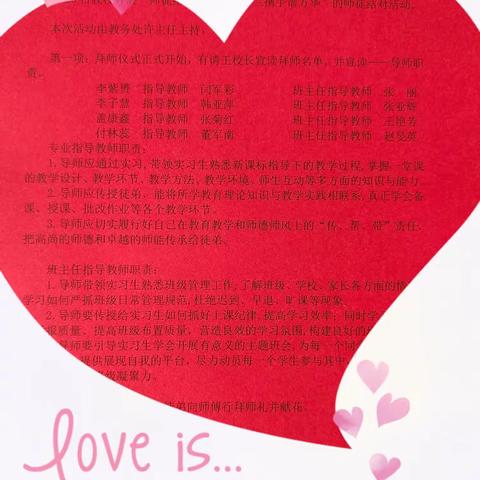 携手谱芳华”的师徒结对活动。
本次活动由教务处许主任主持。
第一项：拜师仪式正式开始，有请王校长宣读拜师名单，并宣读——导师职
责。
李紫赟 指导教师 闫军彩 班主任指导教师 张 丽
李子慧 指导教师 韩亚萍 班主任指导教师 张亚辉
盖康鑫 指导教师 张菊红 班主任指导教师 王艳芳
付林蕊 指导教师 董军南 班主任指导教师 赵旻英
专业指导教师职责：
1.导师应通过实习，带领实习生熟悉新课标指导下的教学过程，掌握一堂课
的教学设计、教学环节、教学方法、教学环境、师生互动等多方面的知识与能力。
2.导师应传授徒弟，能将所学教育理论知识与教学实践相联系，真正学会备
课、授课、批改作业等各个教学环节。
3.导师应切实履行好自己在教育教学和师德师风上的“传、帮、带”责任，
把高尚的师德和卓越的师能传承给徒弟。
班主任指导教师职责：
1.导师带领实习生熟悉班级管理工作，了解班级、学校、家长各方面的情
学习如何严抓班级日常管理规范，杜绝迟到、早退、旷课等现象。
2.导师要传授给实习生如何抓好上课纪律，提高学习效率；同时学
报质量、提高班级布置质量，营造良好的学习氛围，构建良好的
导师要引导实习生学会开展有意义的主题班会，为每一个同
提供展现自我的平台，尽力动员每一个学生参与其中
级凝聚力。
徒弟向师傅行拜师礼并献花。
love is...